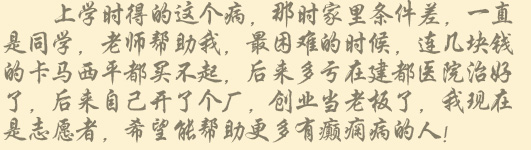 上学时得的这个病，那时家里条件差，一直
是同学，老师帮助我，最困难的时候，连几块钱
的卡马西平都买不起，后来多亏在建都医院治好
了，后来自己开了个厂，创业当老板了，我现在
是志愿者，希望能帮助更多有癫痫病的人！